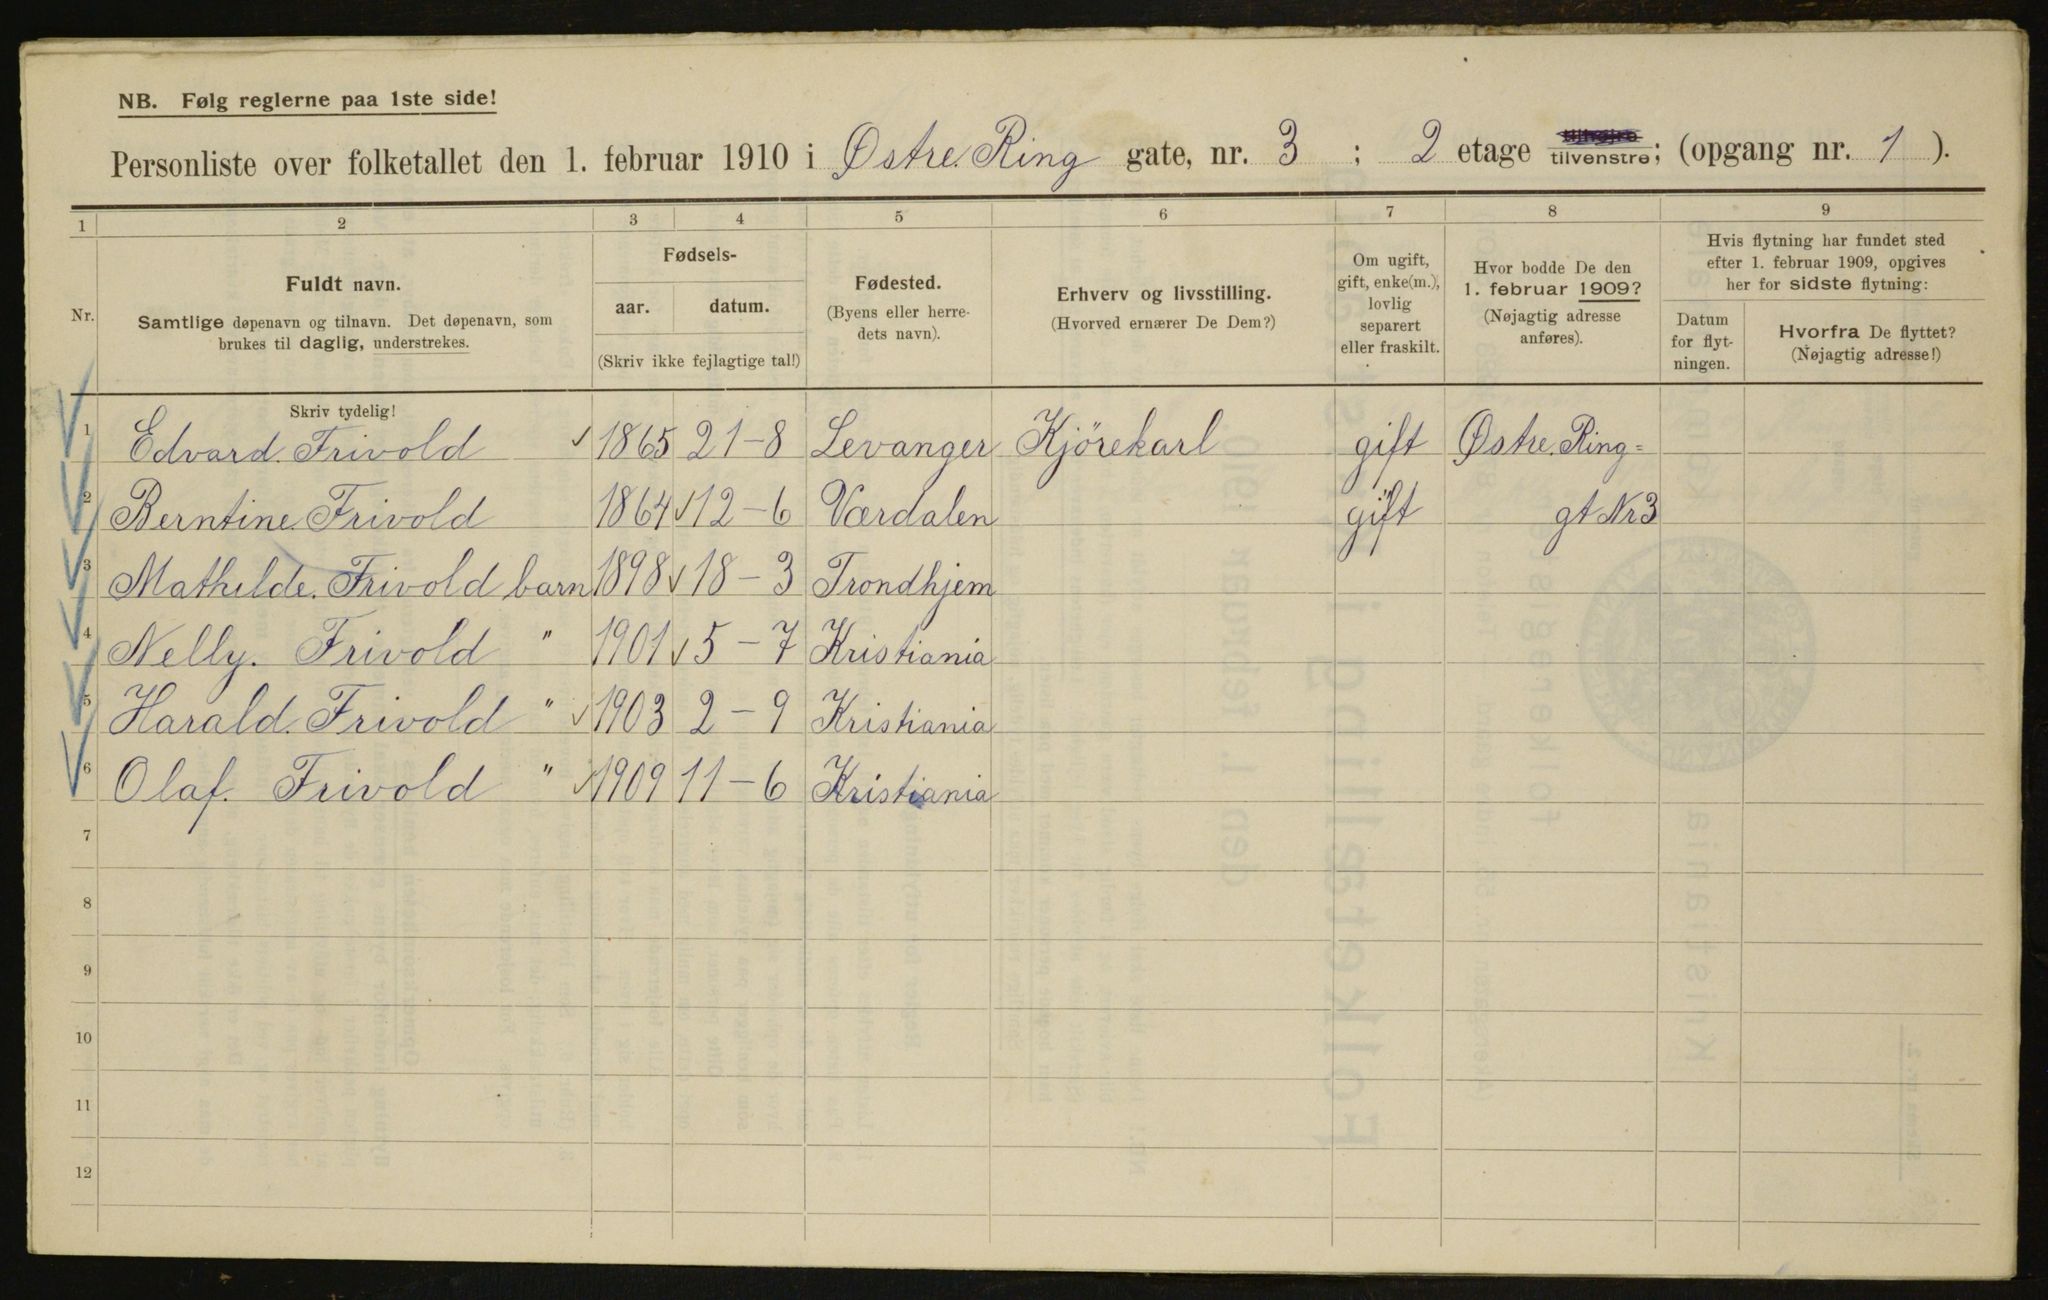 NB. Følg reglerne paa 1ste side!
Personliste over folketallet den 1. februar 1910 i Østre Ring gate, nr. 3 ; 2 etage tilhøire tilvenstre; (opgang nr. 1 ).
1 2 3 4 5 6 7 8 9
Nr.
Fuldt navn.
Samtlige døpenavn og tilnavn. Det døpenavn, som
brukes til daglig, understrekes.
Fødsels-
aar. datum.
(Skriv ikke fejlagtige tal!)
Fødested.
(Byens eller herre-
dets navn).
Erhverv og livsstilling.
(Hvorved ernærer De Dem?)
Om ugift,
gift, enke(m.),
lovlig
separert
eller fraskilt.
Hvor bodde De den
1. februar 1909?
(Nøjagtig adresse
anføres).
Hvis flytning har fundet sted
efter 1. februar 1909, opgives
her for sidste flytning:
Datum
for flyt-
ningen.
Hvorfra De flyttet?
(Nøjagtig adresse!)
Skriv tydelig!
1 Edvard. Frivold 1865 21-8 Levanger Kjörekarl gift Østre. Ring=
2 Berntine Frivold 1864 12-6 Værdalen gift gt Nr 3
3 Mathilde. Frivold barn 1898 18-3 Trondhjem
4 Nelly. Frivold " 1901 5-7 Kristiania
5 Harald. Frivold " 1903 2-9 Kristiania
6 Olaf. Frivold " 1909 11-6 Kristiania
7
8
9
10
11
12